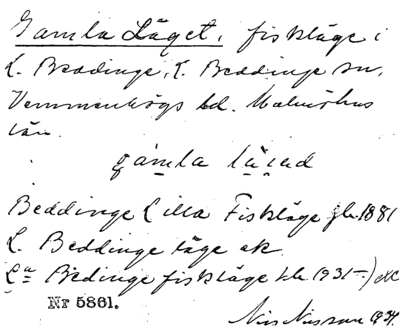 Gamla Läget, fiskläge i
L. Beddinge, L. Beddinge sn,
Vemmenhögs hd. Malmöhus
län.
gamla
Beddinge Lilla Fiskläge 1881
L. Beddinge läge ek
La Bedinge fiskläge 1931–) ek
Nr 5861.
Nils Nilsson 1934.